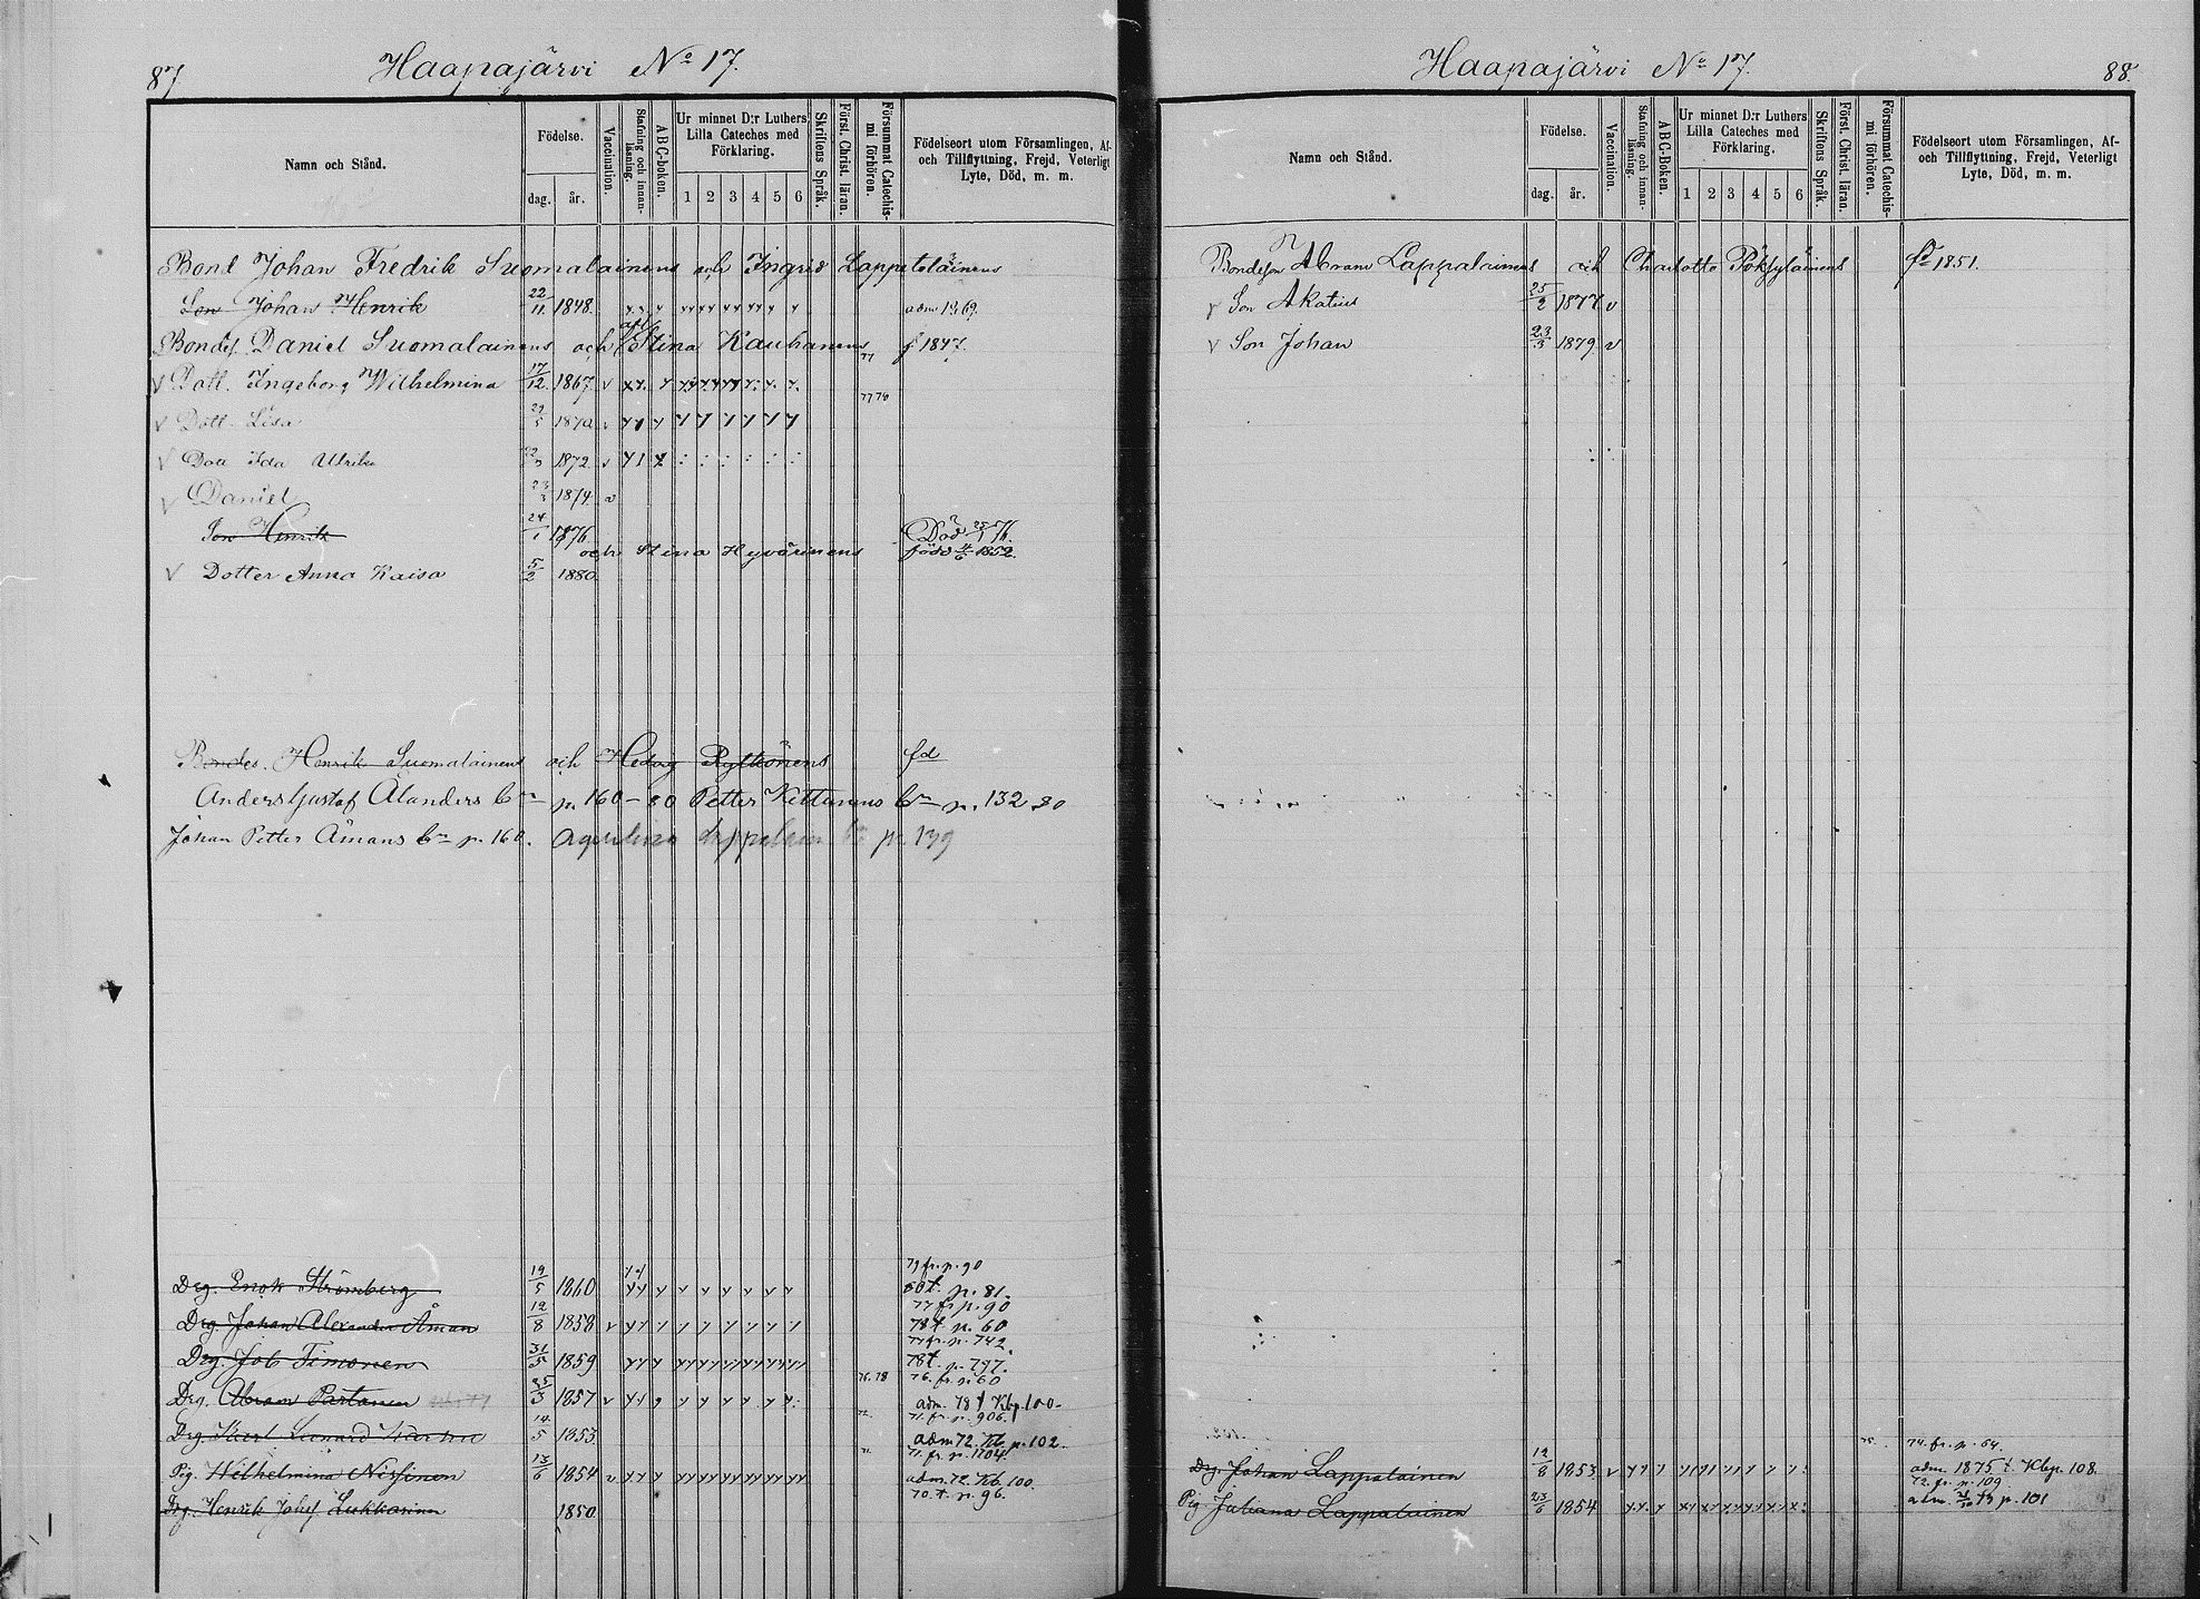 87
Haapajärvi No 17.
Namn och Stånd.
Födelse.
dag.
år.
Vaccination.
Stafning och innanläsning.
ABC-boken.
Ur minnet D:r Luthers Lilla Cateches med Förklaring.
1 2 3 4 5 6
Skriftens Språk.
Först. Christ. läran.
Försummat Catechismi förhören.
Födelseort utom Församlingen, Af- och Tillflyttning, Frejd, Veterligt Lyte, Död, m. m.
Bond Johan Fredrik Suomalainens och Ingrid Lappeteläinens
Son Johan Henrik 22/11 1848. adm 1869.
Bondes. Daniel Suomalainens och Stina Kauhanens f. 1847.
77
v Dott. Ingeborg Wilhelmina 17/12 1867. v
77 78
v Dott. Lisa 29/5 1870 v
v Dott Ida Ulrika 1872. v
v Daniel 23/3 1874. v
Son Henrik 24/1 1876. Död 76.
och Stina Hyvärinens född 1852.
v Dotter Anna Kaisa 5/2 1880
Bondes. Henrik Suomalainens och Hedvig Rytkönens fd
Anders Gustaf Ålanders bn p. 160 - 80 Petter Kettunens bn p. 132 80
Johan Petter Åmans bn p. 160. p. 139
79 fr. p. 90
Drg. Enok Strömberg 19/5 1860 80 t. p. 81.
77 fr p. 90
Drg. Johan Alexander Åman 12/8 1858 v 78 t. p. 60
77 fr. p. 742
Drg. Job Timonen 31/5 1859 78 t. p. 797.
76. 78 76. fr. p. 60
Drg. Abram Partanen 25/3 1857 v adm. 78 t Kbp. 100.
72. 71. fr. p. 906.
Drg. Karl Leonard 14/5 1853 adm 72. p. 102.
71. 71. fr. p. 1104
Pig. Wilhelmina Nissinen 13/6 1854 v adm. 72. 100.
70. t. p. 96.
Drg. Henrik Johs Lukkarinen 1850
Haapajärvi No 17.
88.
Namn och Stånd.
Födelse.
dag.
år.
Vaccination.
Stafning och innanläsning.
ABC-Boken.
Ur minnet D:r Luthers Lilla Cateches med Förklaring.
1 2 3 4 5 6
Skriftens Språk
Först. Christ. läran.
Försummat Catechismi förhören.
Födelseort utom Församlingen, Af- och Tillflyttning, Frejd, Veterligt Lyte, Död, m. m.
Bondeson Abram Lappalainens och Charlotta Pöksyläinens fd 1851.
v Son Akatius 25/2 1877 v
v Son Johan 23/3 1879 v
75. 74. fr. p. 64.
Drg. Johan Lappalainen 12/8 1853 v adm 1875 t. Kbp. 108.
72. fr. p. 109
Pig Juliana Lappalainen 23/6 1854 adm. 73 p. 101